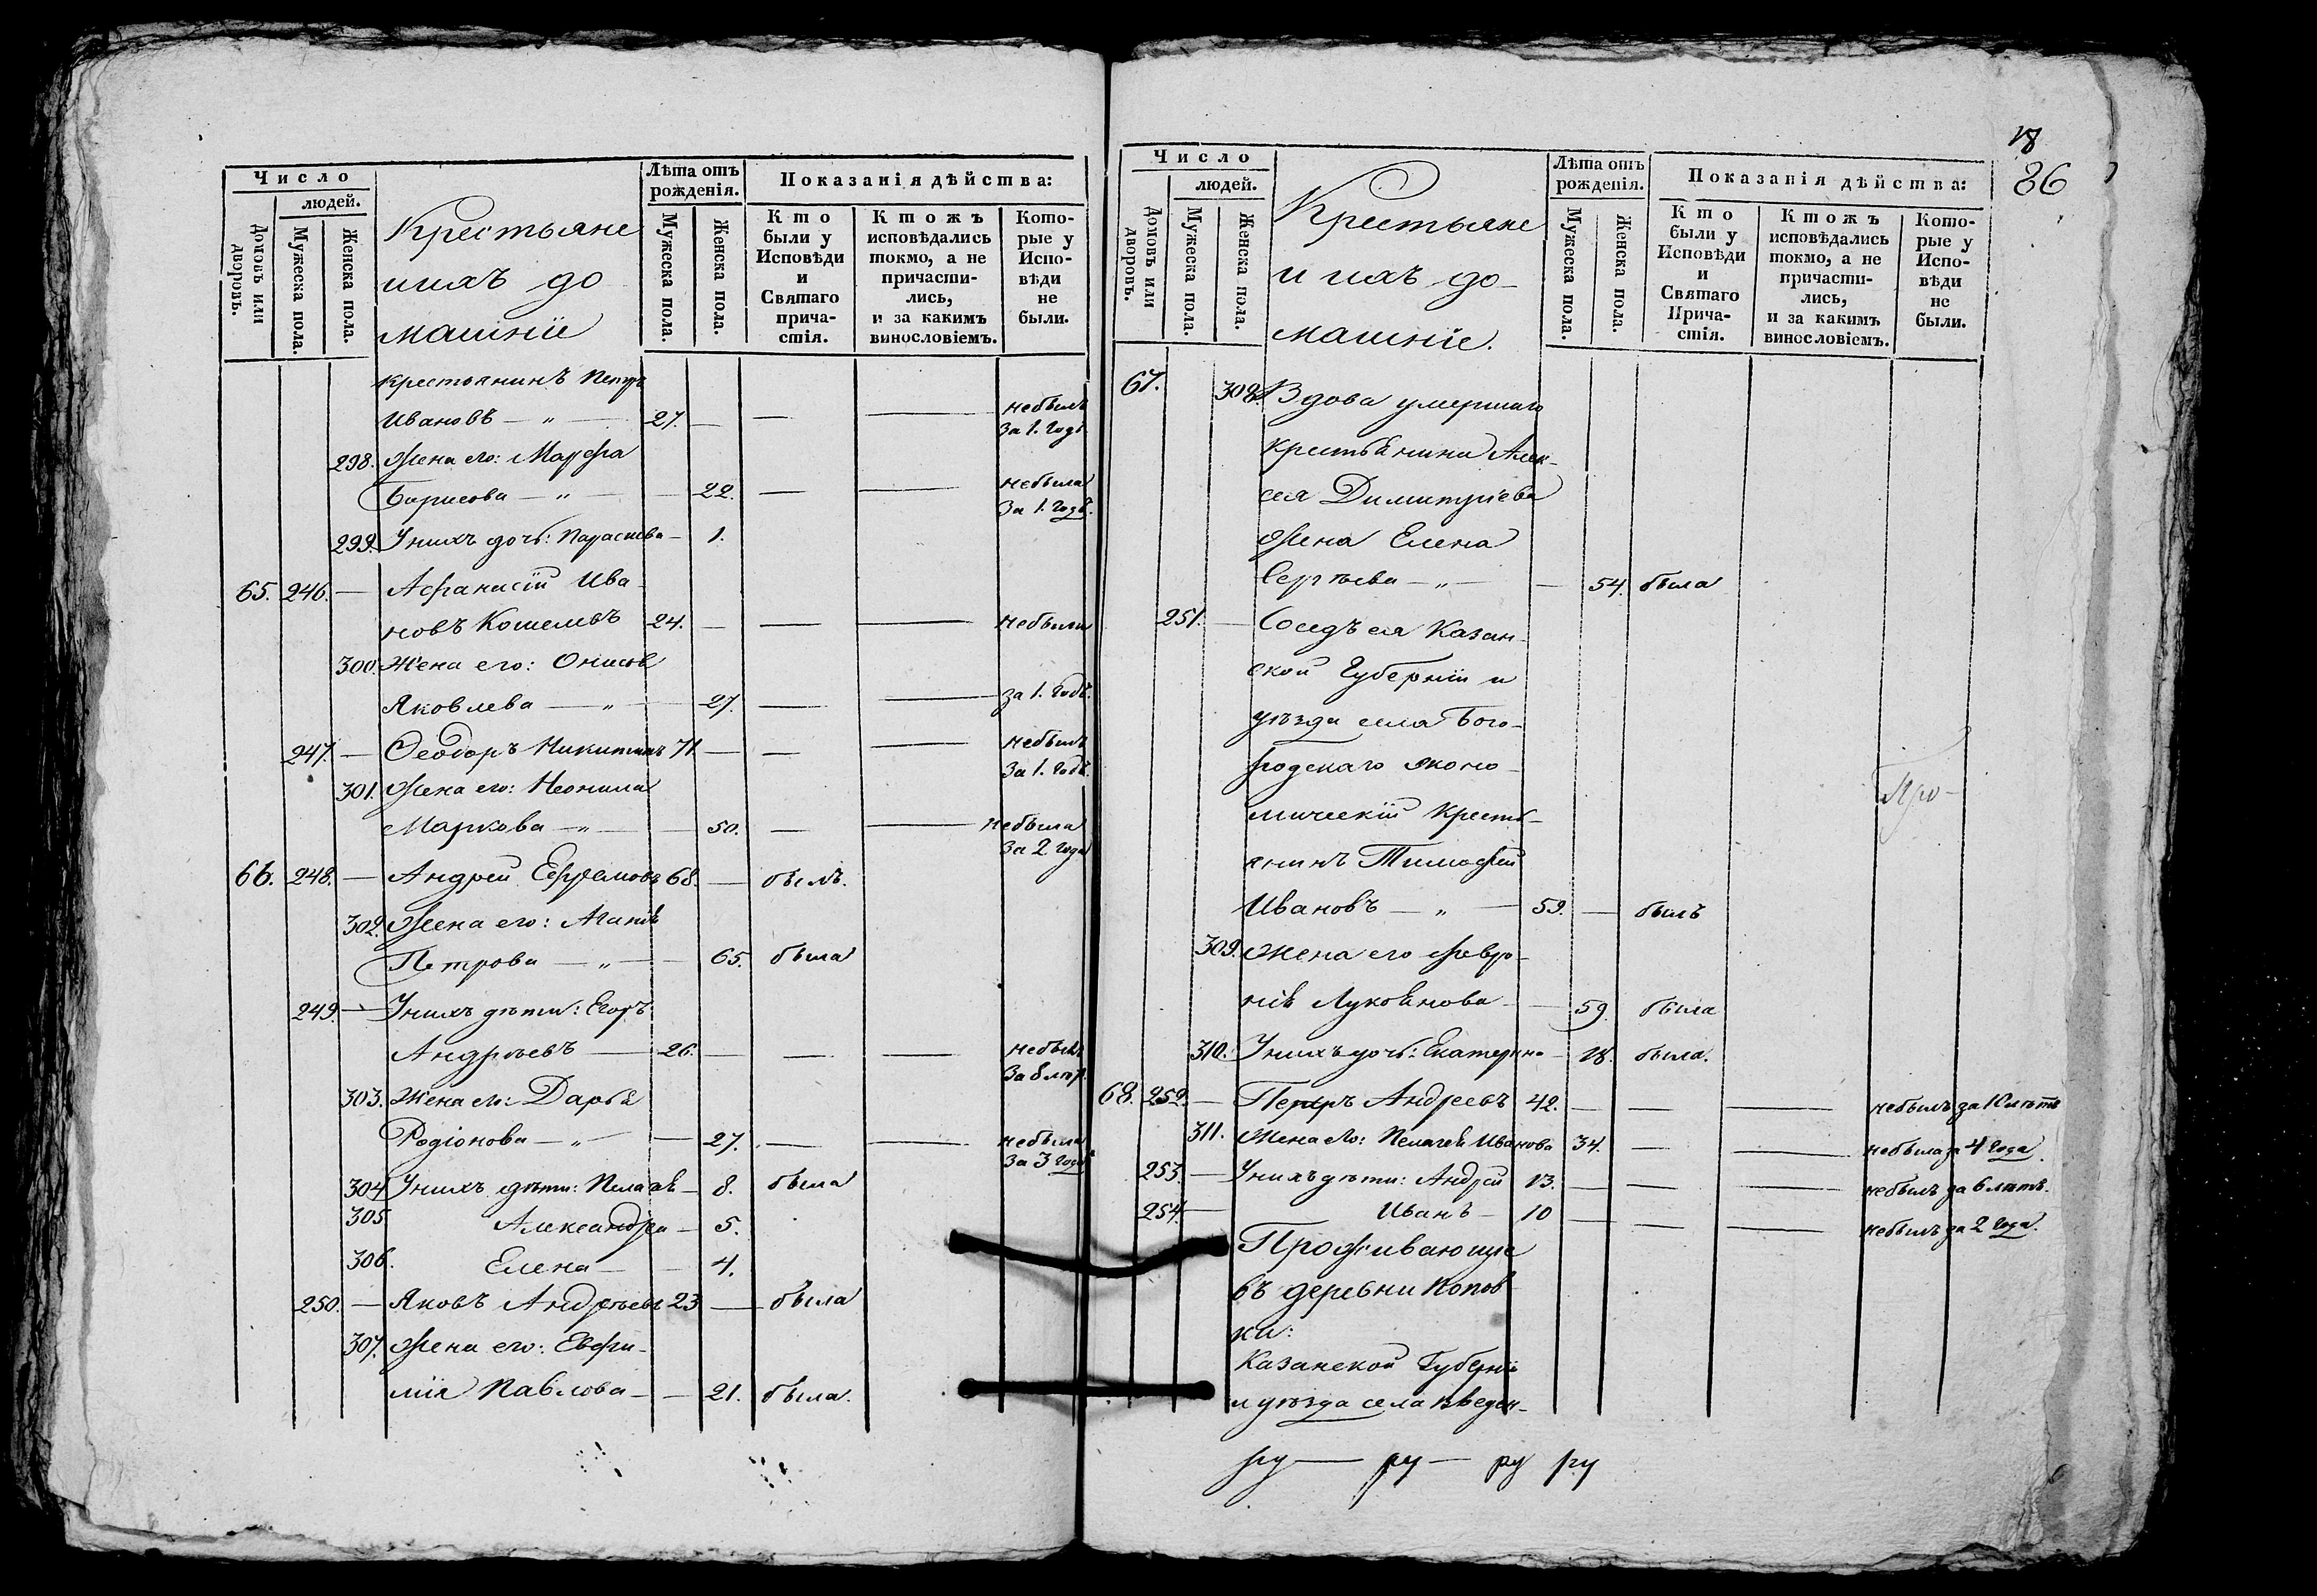 Число
людей.
Домовъ или дворовъ.
Мужеска пола.
Женска пола.
Крестьяне
ихъ до
машніе
Лѣта отъ
рожденія.
Мужеска пола.
Женска пола.
Показанія дѣйства:
Кто
были у
Исповѣди
и
Святаго
прича-
стія.
Ктожъ
исповѣдались
токмо, а не
причасти-
лись,
и за какимъ
винословіемъ.
Кото-
рые у
Испо-
вѣди
не
были.
крестьянинъ Петръ
Ивановъ — „ — 27. — — — небылъ
за 1. годъ.
298. Жена его: Марфа
Борисова — „ — 22. — — небыла
за 1. годъ.
299. Унихъ дочь: Параскева — 1.
65. 246. — Афанасій Ива-
новъ Кошелевъ 24. — — — небыли
300. Жена его: Онисья
Яковлева — „ — 27. — — за 1. годъ.
247. — Феодоръ Никитинъ 71 — — — небылъ
за 1. годъ.
301. Жена его: Неонила
Маркова — „ — 50. — — небыла
за 2 года
66. 248. — Андрей Ефремовъ 68. — былъ.
302. Жена его: Агапія
Петрова — „ — 65. была
249. — Унихъ дѣти: Егоръ
Андрѣевъ — 26. — — — небылъ
за 8 лѣт.
303. Жена его: Дарья
Родіонова — „ — 27. — — небыла
за 3 года
304. Унихъ дѣти: Пелагея — 8. была
305. Александра — 5.
306. Елена — 4.
250. — Яковъ Андрѣевъ 23 — была
307. Жена его: Евфи-
мія Павлова — 21. была.
18
86
Число
людей.
Домовъ или дворовъ.
Мужеска пола.
Женска пола.
Крестьяне
и ихъ до-
машніе.
Лѣта отъ
рожденія.
Мужеска пола.
Женска пола.
Показанія дѣйства:
Кто
были у
Исповѣди
и
Святаго
Прича-
стія.
Ктожъ
исповѣдались
токмо, а не
причасти-
лись,
и за какимъ
винословіемъ.
Кото-
рые у
Испо-
вѣди
не
были.
67. 308. Вдова умершаго
крестьянина Алек-
сея Димитріева
Жена Елена
Сергѣева — „ — 54. была
251. — Соседъ ея Казан-
ской Губерніи и
уѣзда села Бого-
родскаго эконо-
мическій Кресть-
янинъ Тимофей
Ивановъ — „ — 59. — былъ
309. Жена его Февро-
нія Лукоянова — 59. была
310. Унихъ дочь: Екатерина — 18. была.
68. 252. — Петръ Андреевъ 42. — — — небылъ за 10 лѣтъ
311. Жена его: Пелагея Иванова 34. — — небыла за 4 года
253. — Унихъ дѣти: Андрей 13. — — — небылъ за 6 лѣтъ.
254. — Иванъ — 10 — — — небылъ за 2 года.
Проживающие
въ деревни Попов
ки:
Казанской Губерніи
и уѣзда села Введен-
Про-
ру — ру — ру ру